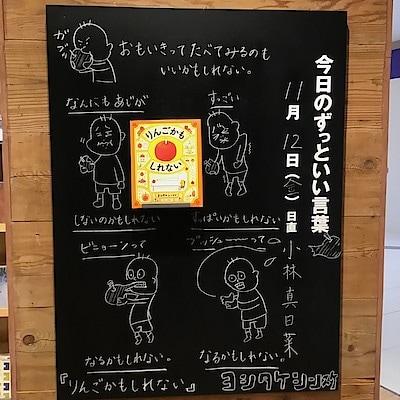 今日のずっといい言葉
11月12日(金)日直
小林真日菜
ガブッ
おもいきってたべてみるのも
いいかもしれない。
なんにもあじが
しないのかもしれない
すっごい
すっぱいかもしれない
りんごかも
しれない
ビョーンって
なるかもしれない。
ブッシューーって
なるかもしれない。
『りんごかもしれない』
ヨシタケシンスケ